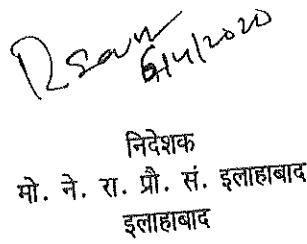 6/4/2020
निदेशक
मो. ने. रा. प्रौ. सं. इलाहाबाद
इलाहाबाद